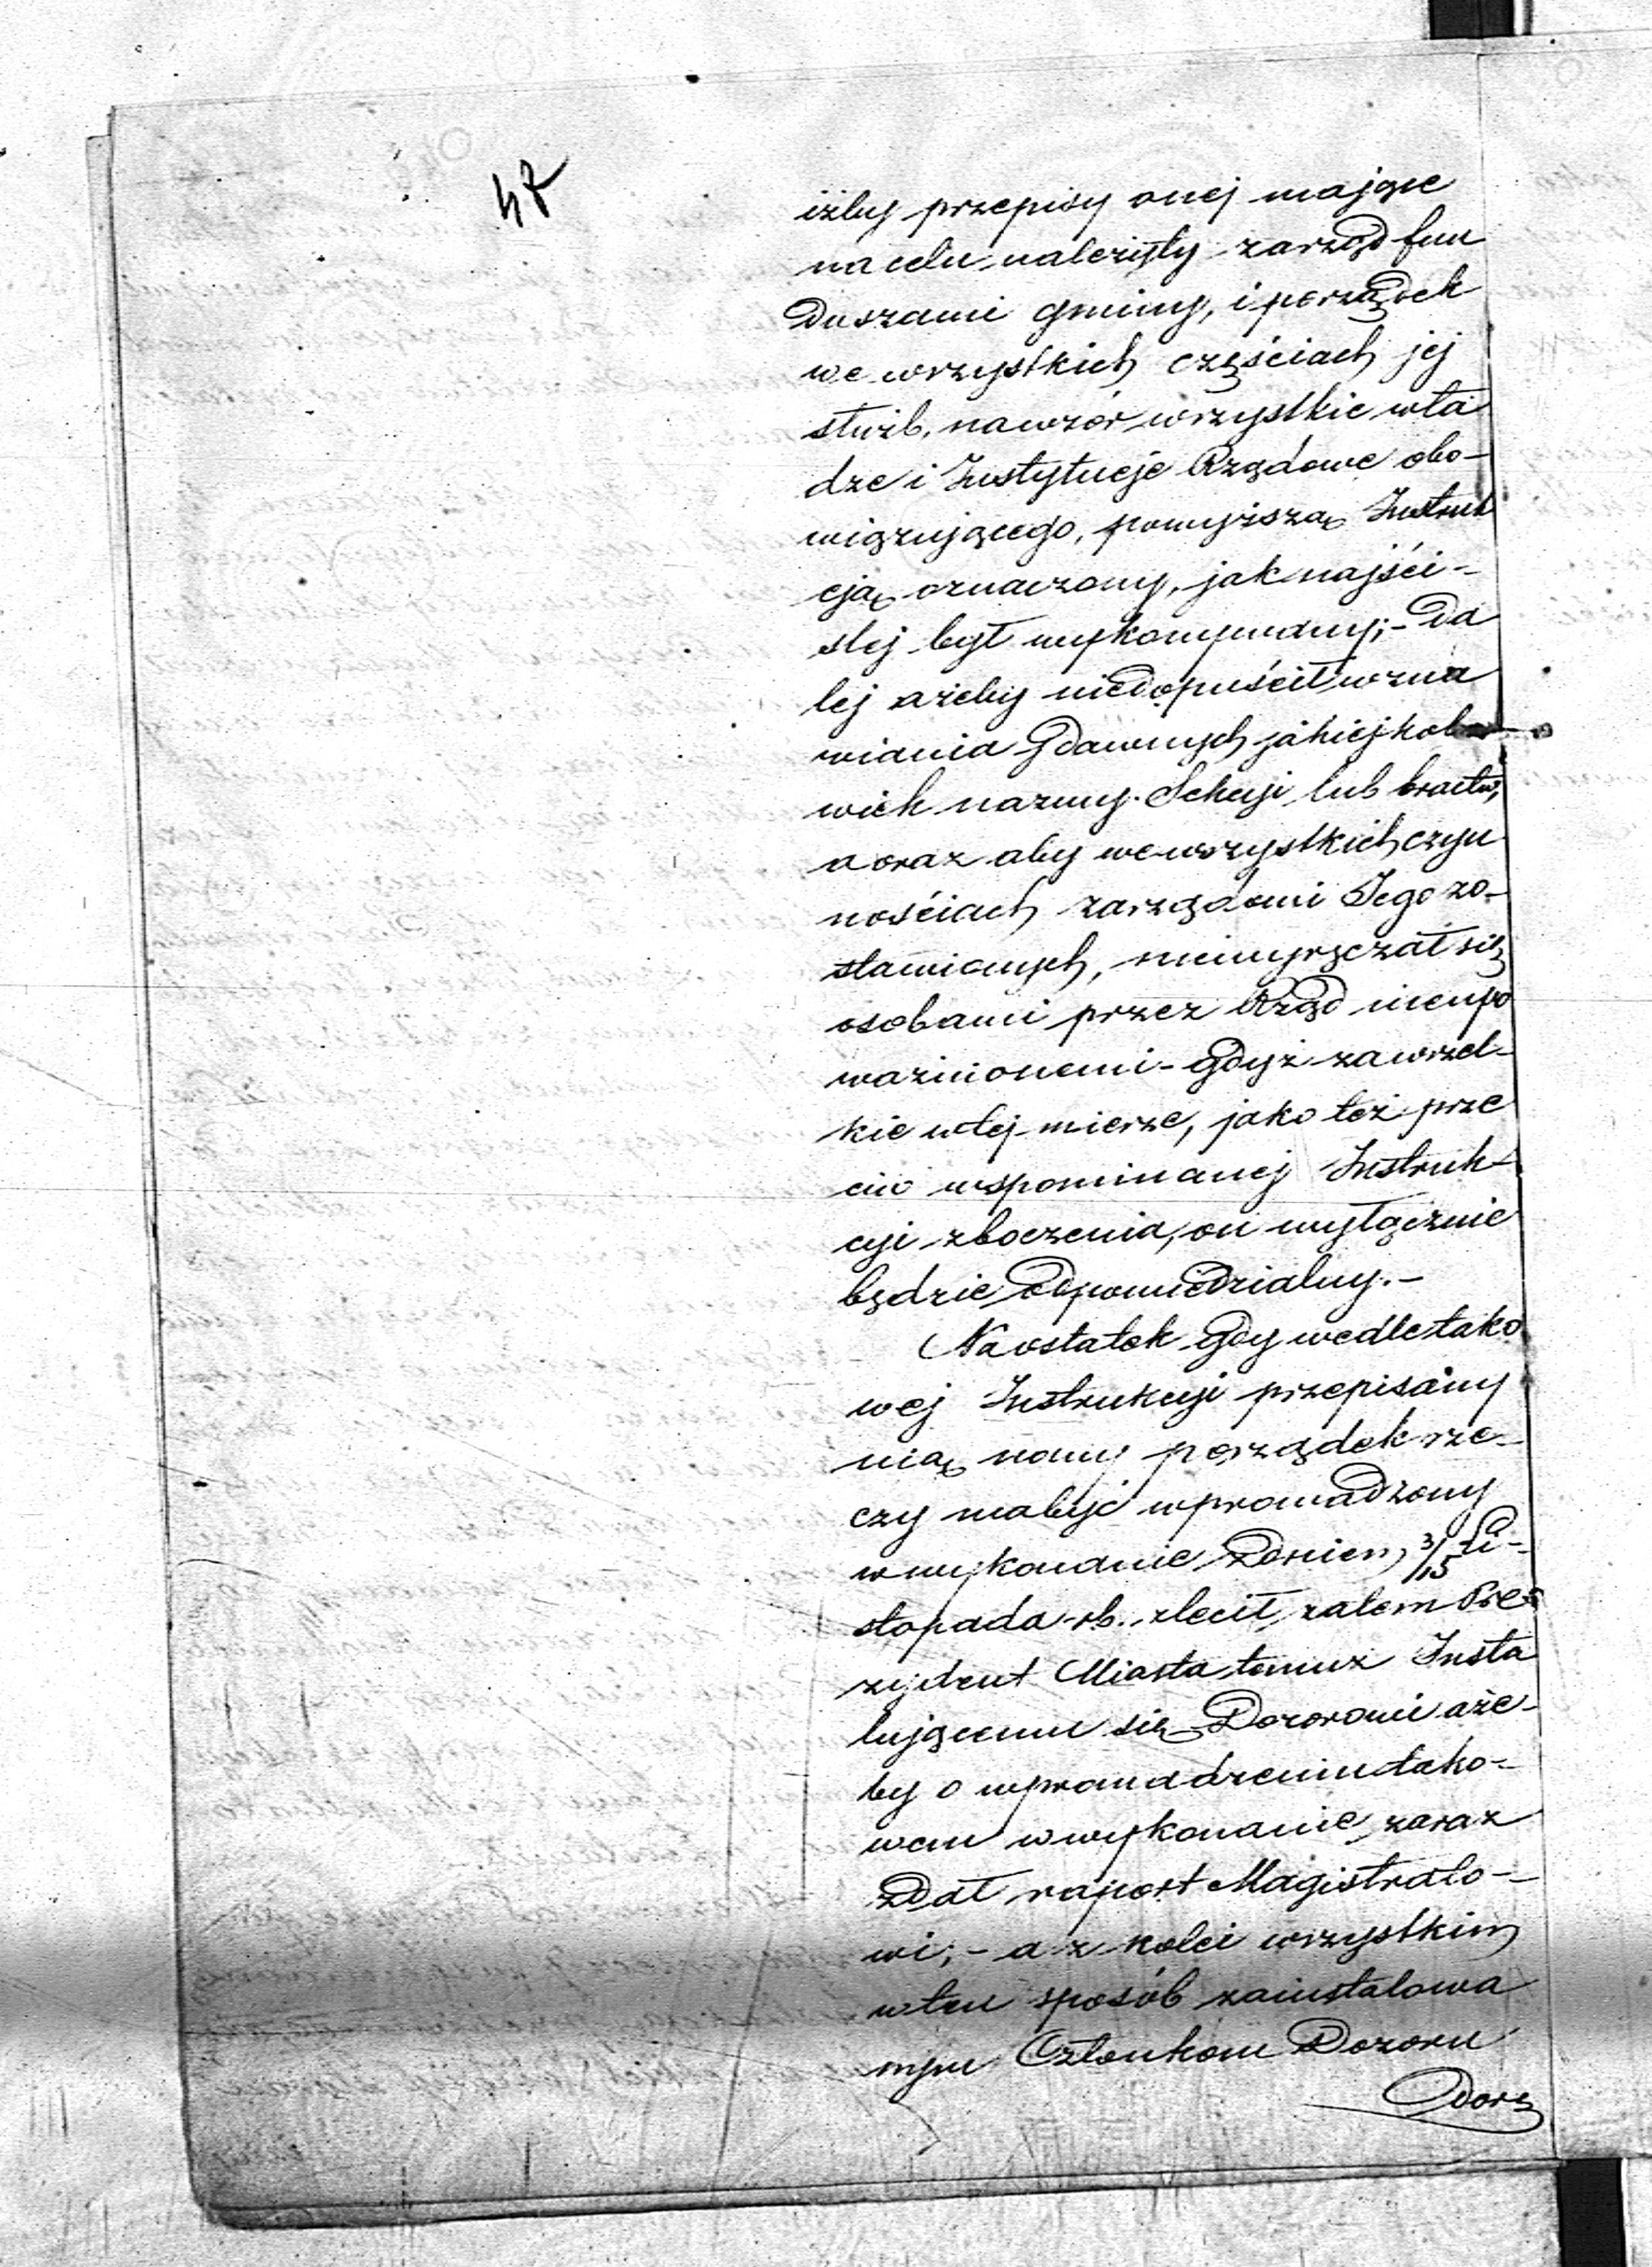 47
iżby przepisy onej mające
na celu należyty zarząd fun
duszami gminy, i porządek
we wszystkich częściach jej
służb, na wzór wszystkie wła
dze i Instytucje Rządowe obo-
wiązującego, powyższą Instruk
cją oznaczony, jak najści-
slej był wykonywany; - Da
lej ażeby niedopuścił wzna
wiania Gdawnych jakiejkol
wiek nazwy Sekcyi lub bractw,
a oraz aby we wszystkich czyn
nościach zarządowi Jego zo-
stawionych, niewyręczał się
osobami przez Rząd nieupo
ważnionemi - gdyż za wszel-
kie w tej mierze, jako też prze
ciw wspominanej Instruk-
cyi zboczenia, on wyłącznie
będzie odpowiedzialny. -
Na ostatek gdy wedle tako
wej Instrukcyi przepisany
nią nowy porządek rze-
czy ma być wprowadzony
w wykonanie z dniem 3/15 Li-
stopada rb. zlecił zatem Pre
zydent Miasta temuż Insta
lującemu się Dozorowi aże-
by o wprowadzeniu tako-
wem w wykonanie zaraz
zdał raport Magistrato-
wi; - a z kolei wszystkim
w ten sposób zainstalowa
nym Członkom Dozoru
Dorę